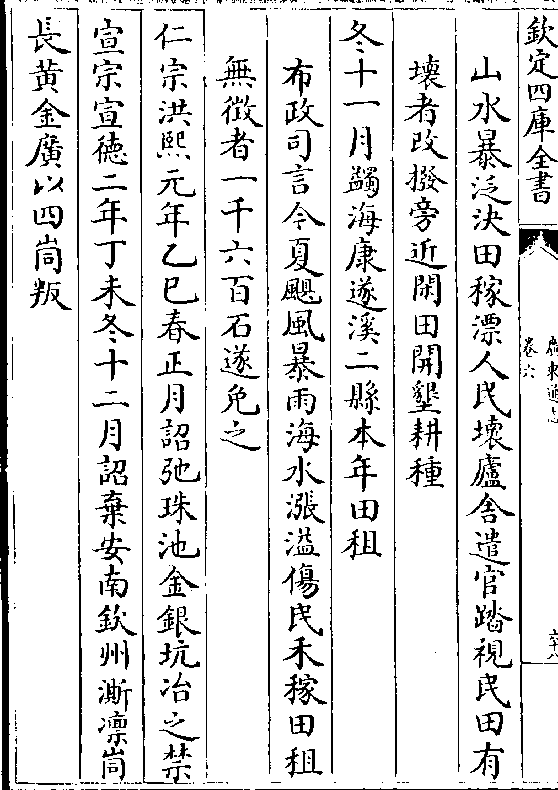 欽定四庫全書
廣東通志
卷六
六十八
山水暴泛決田稼漂人民壞廬舍遣官踏視民田有
壞者改撥旁近閒田開墾耕種
冬十一月蠲海康遂溪二縣本年田租
布政司言今夏颶風暴雨海水漲溢傷民禾稼田租
無徴者一千六百石遂免之
仁宗洪熙元年乙巳春正月詔弛珠池金銀坑冶之禁
宣宗宣德二年丁未冬十二月詔棄安南欽州澌凛峝
長黄金廣以四峝叛